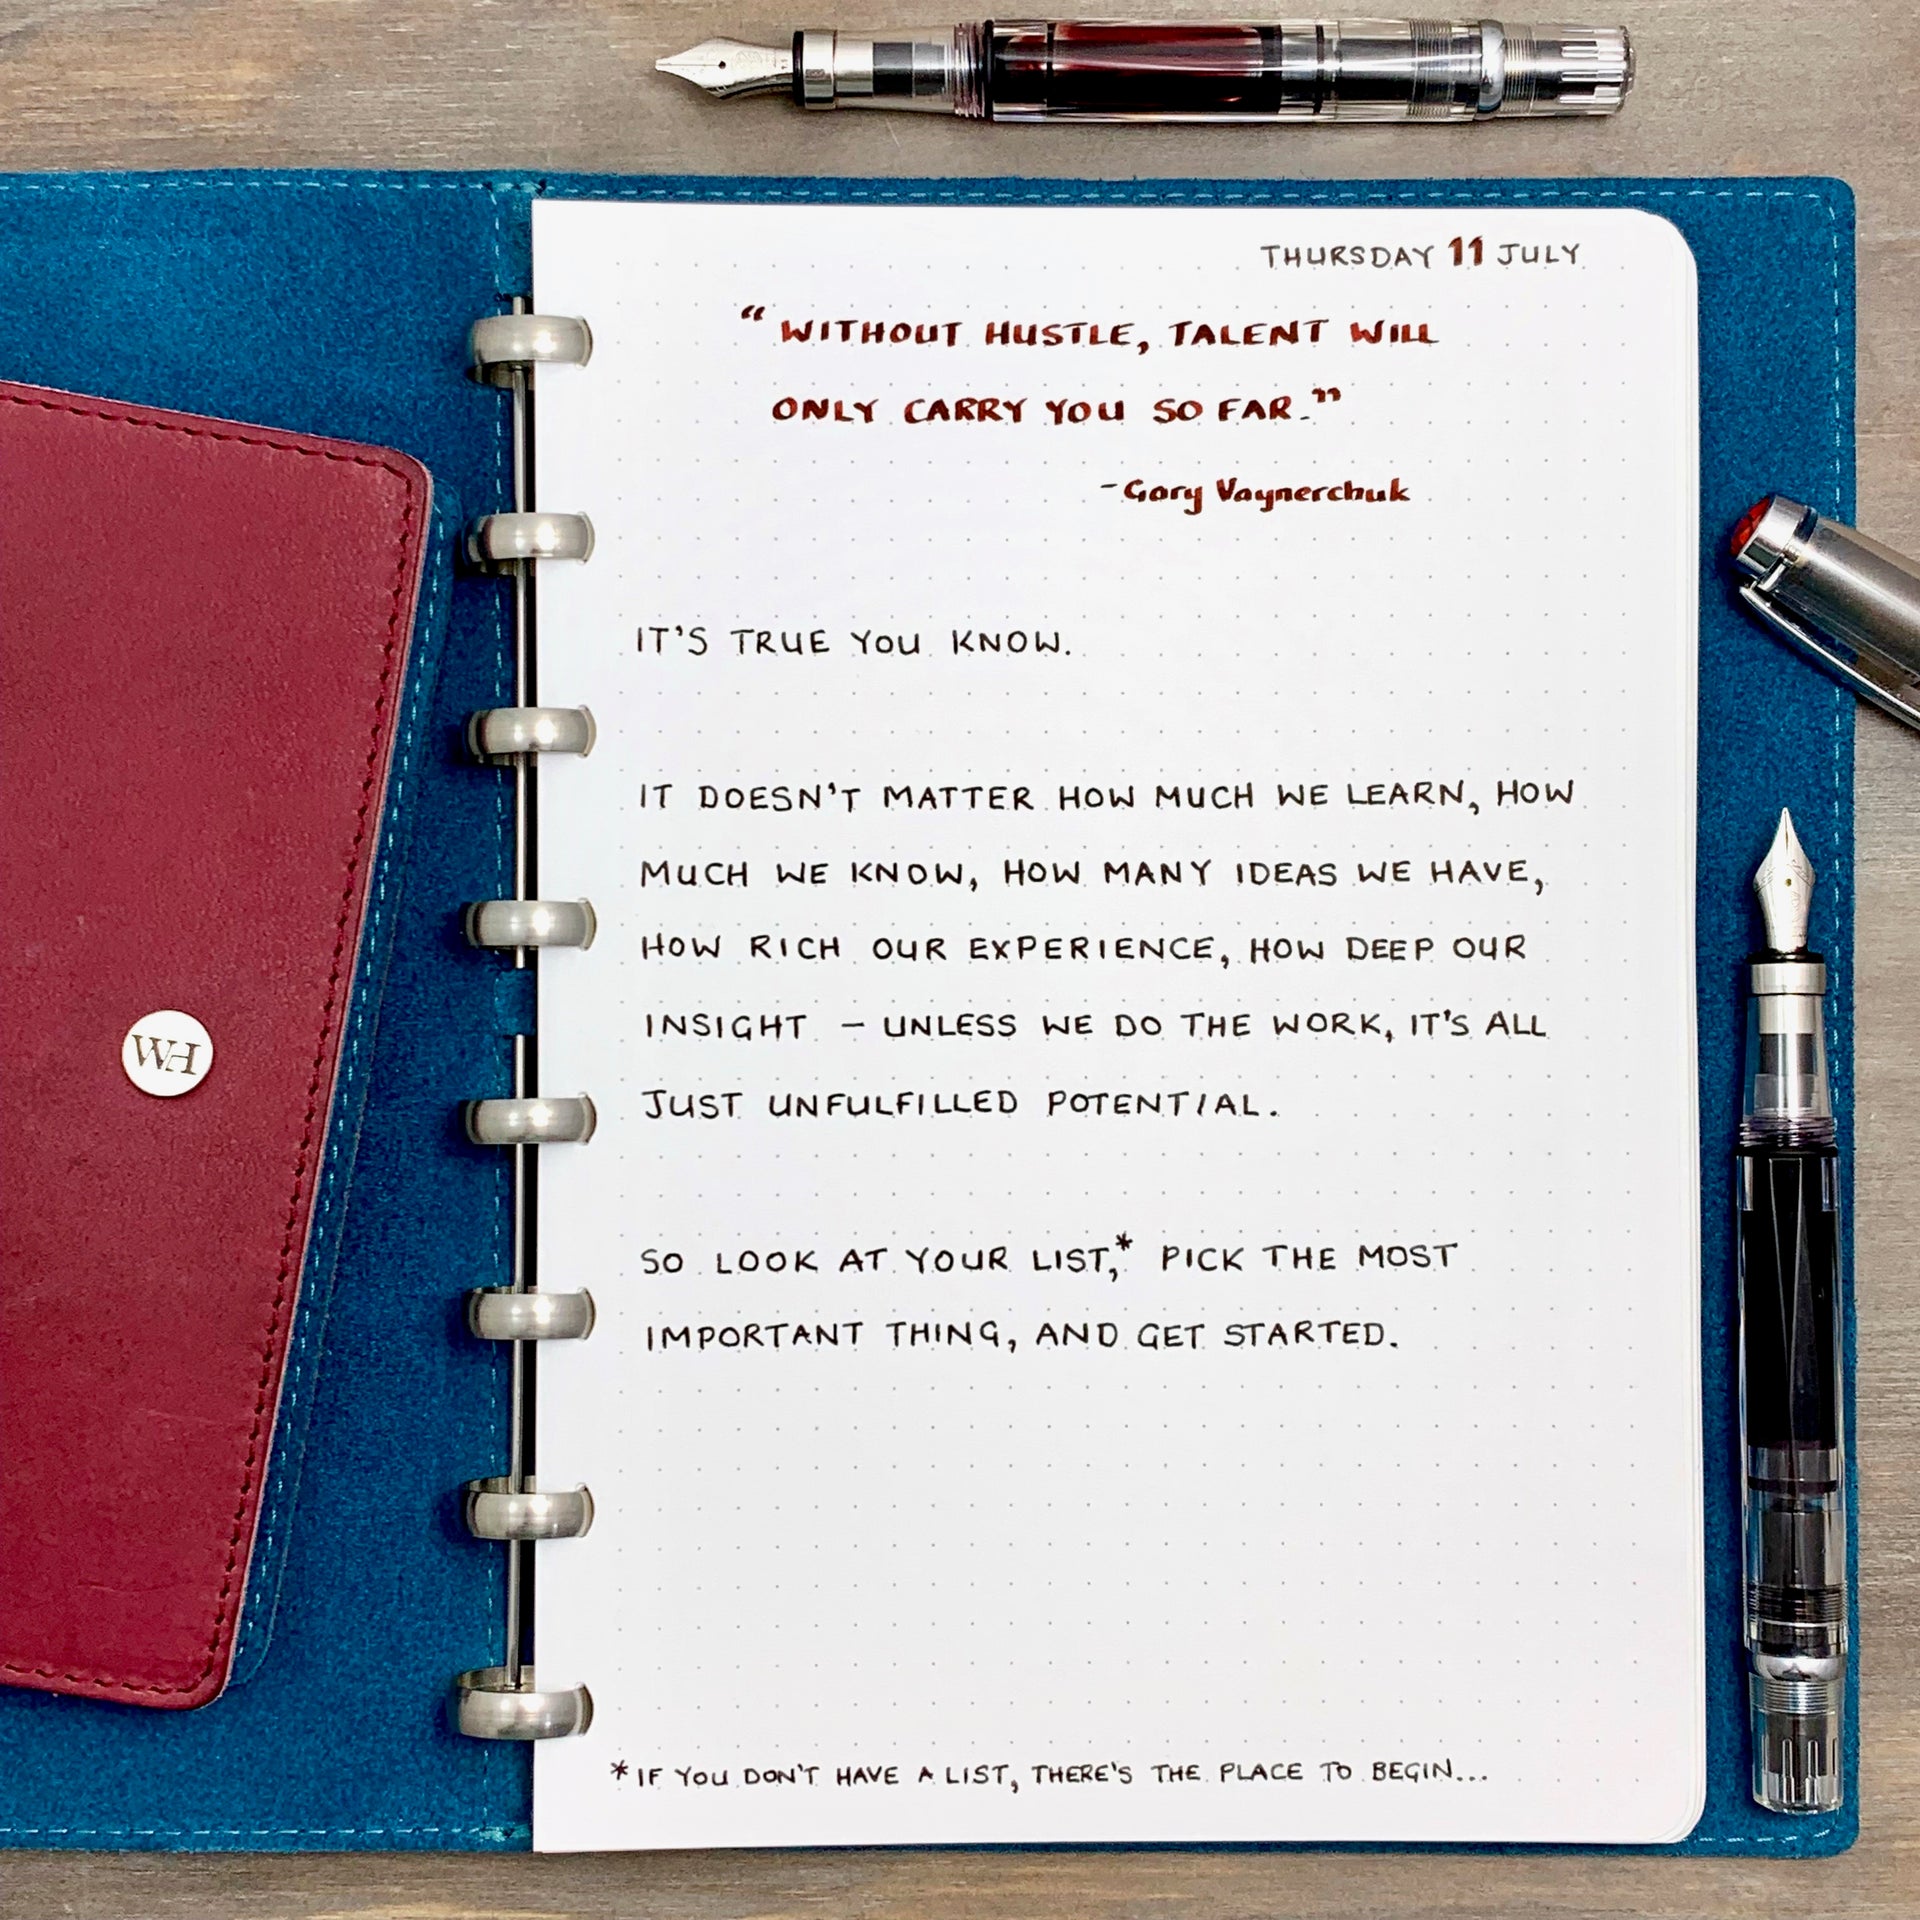 THURSDAY 11 JULY
“WITHOUT HUSTLE, TALENT WILL
ONLY CARRY YOU SO FAR.”
- Gary Vaynerchuk
IT'S TRUE YOU KNOW.
IT DOESN'T MATTER HOW MUCH WE LEARN, HOW
MUCH WE KNOW, HOW MANY IDEAS WE HAVE,
HOW RICH OUR EXPERIENCE, HOW DEEP OUR
INSIGHT – UNLESS WE DO THE WORK, IT'S ALL
JUST UNFULFILLED POTENTIAL.
SO LOOK AT YOUR LIST,* PICK THE MOST
IMPORTANT THING, AND GET STARTED.
*IF YOU DON'T HAVE A LIST, THERE'S THE PLACE TO BEGIN...
WH